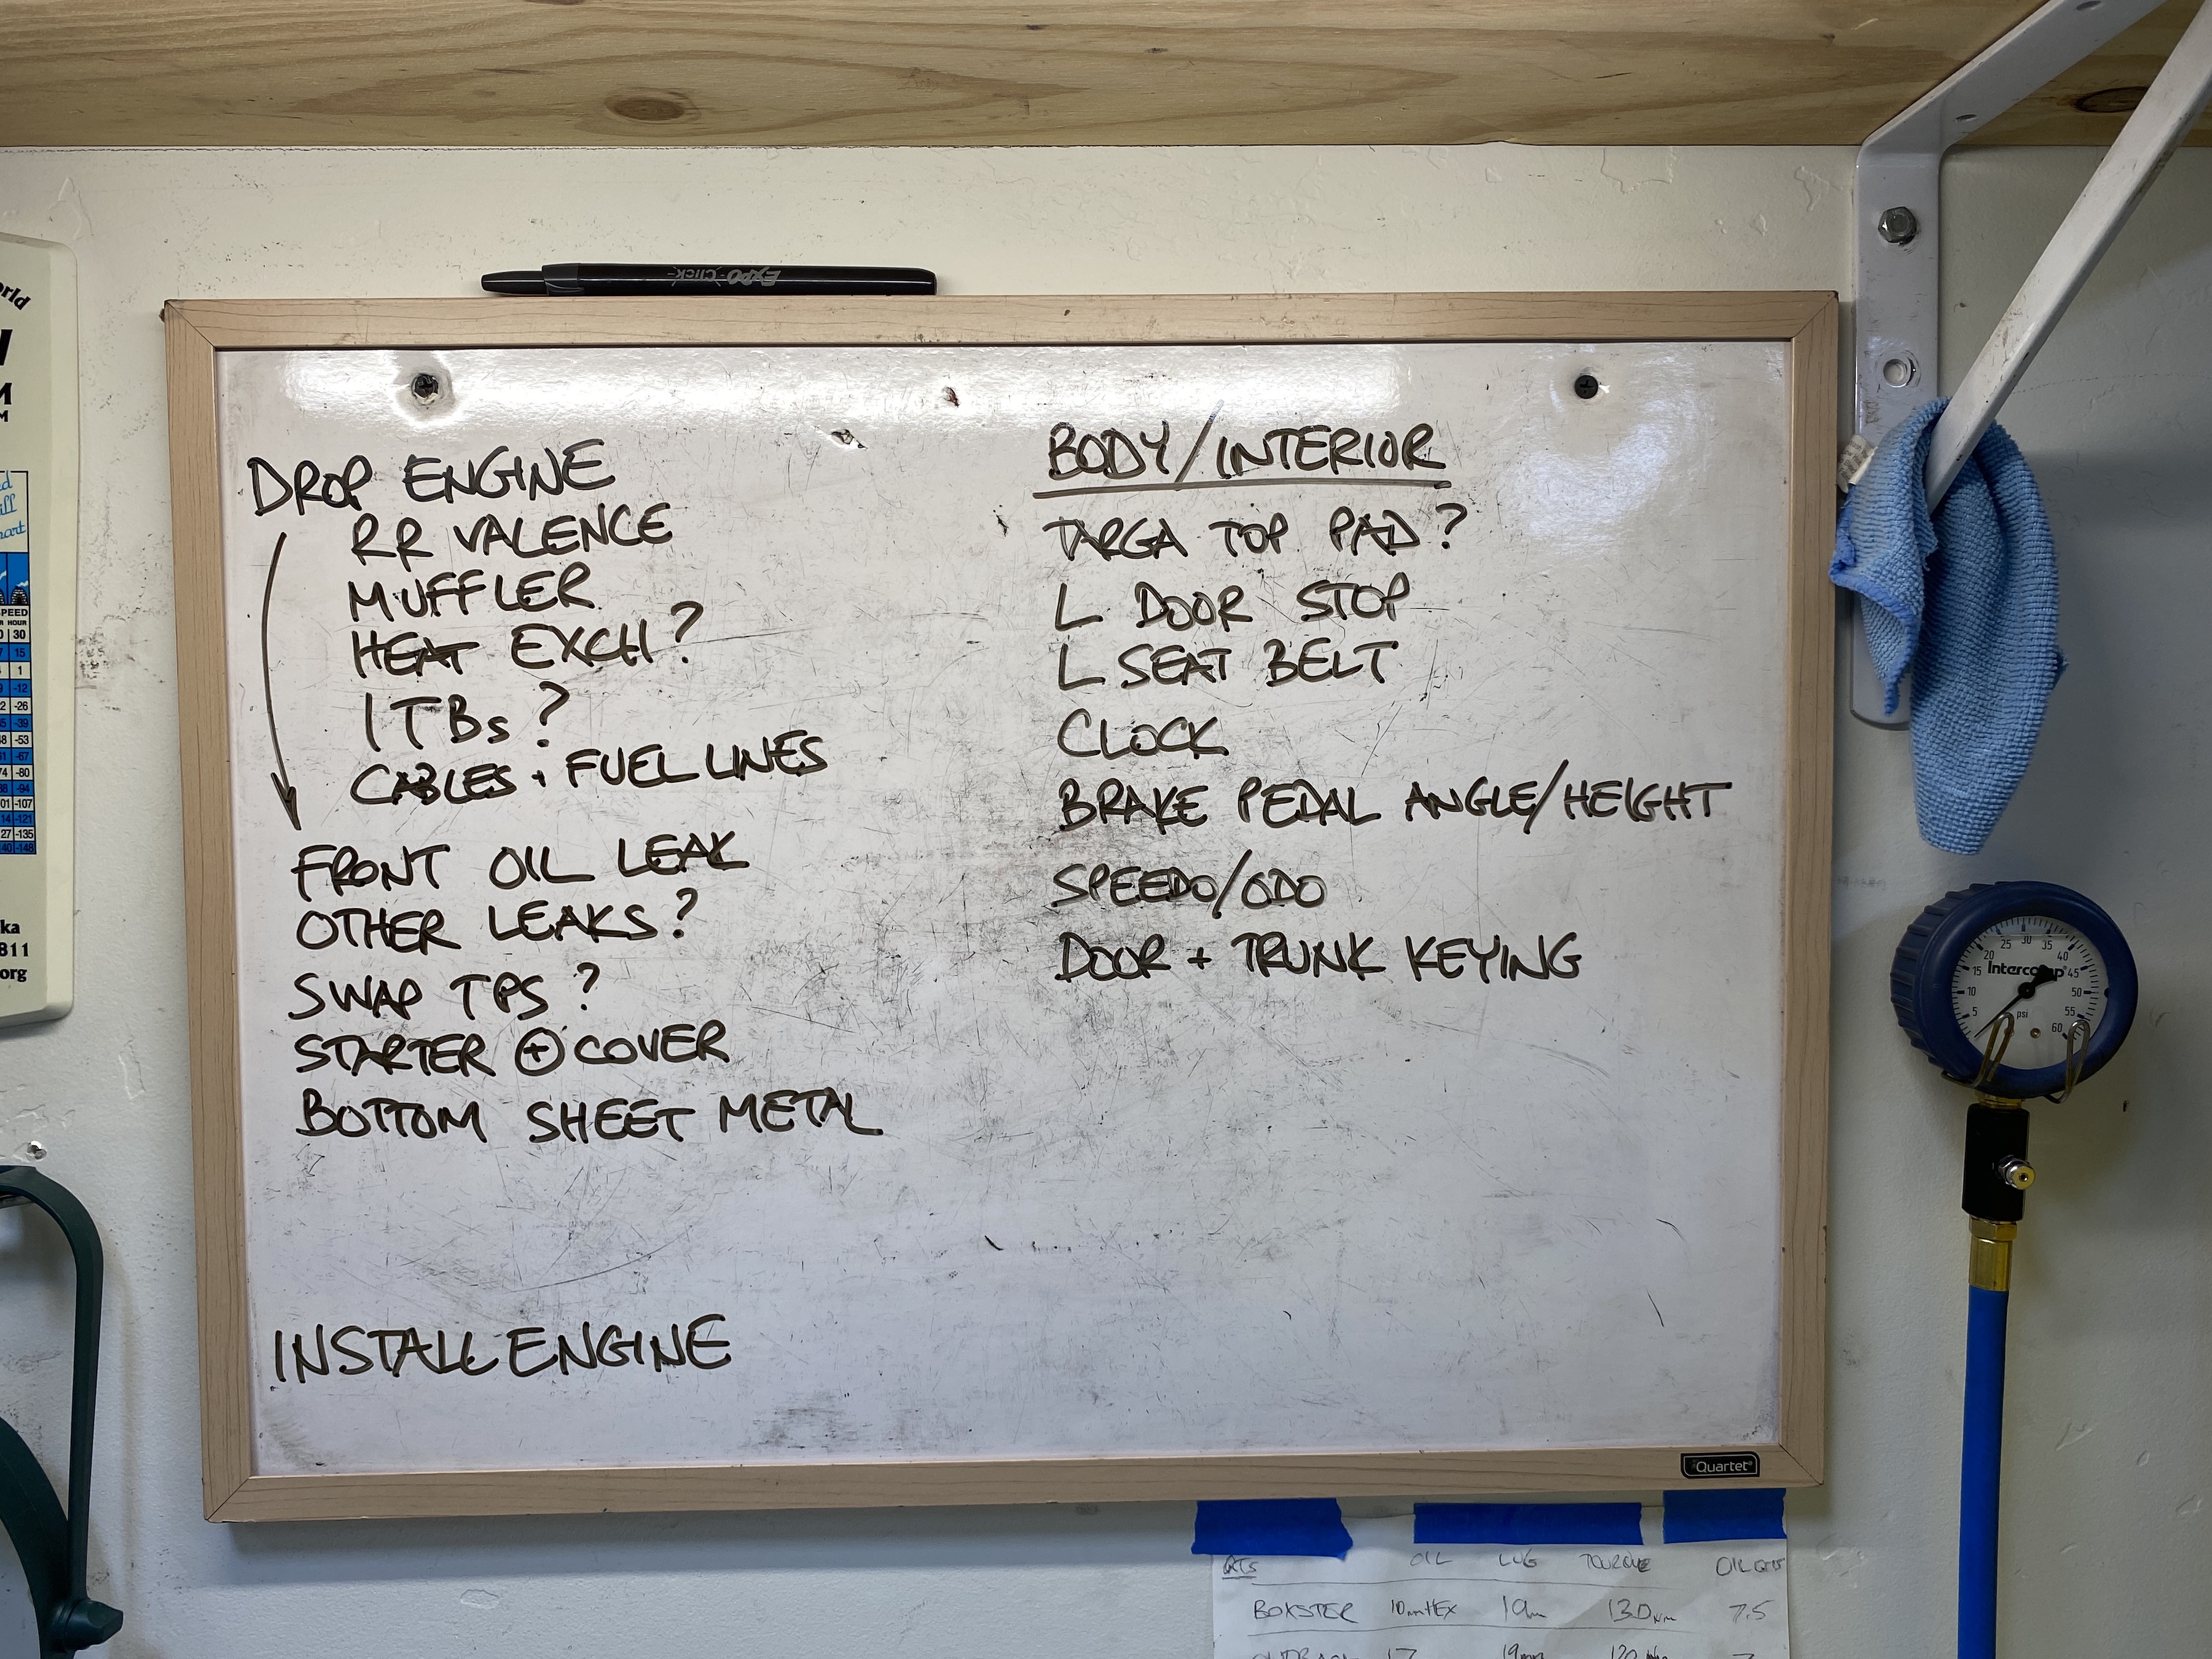 EXPO Click
DROP ENGINE
RR VALENCE
MUFFLER
HEAT EXCH?
ITBs?
CABLES + FUEL LINES
FRONT OIL LEAK
OTHER LEAKS?
SWAP TPS?
STARTER + COVER
BOTTOM SHEET METAL
INSTALL ENGINE
BODY/INTERIOR
TARGA TOP PAD?
L DOOR STOP
L SEAT BELT
CLOCK
BRAKE PEDAL ANGLE/HEIGHT
SPEEDO/ODO
DOOR + TRUNK KEYING
Quartet
SPEED
HOUR
30
15
1
-12
-26
-39
-53
-67
-80
-94
-107
-121
-135
-148
811
org
5 10 15 20 25 30 35 40 45 50 55 60
Intercomp
psi
OIL LUG TORQUE OIL QTS
BOXSTER 10mm HEX 19m 130Nm 7.5
17 19mm 120